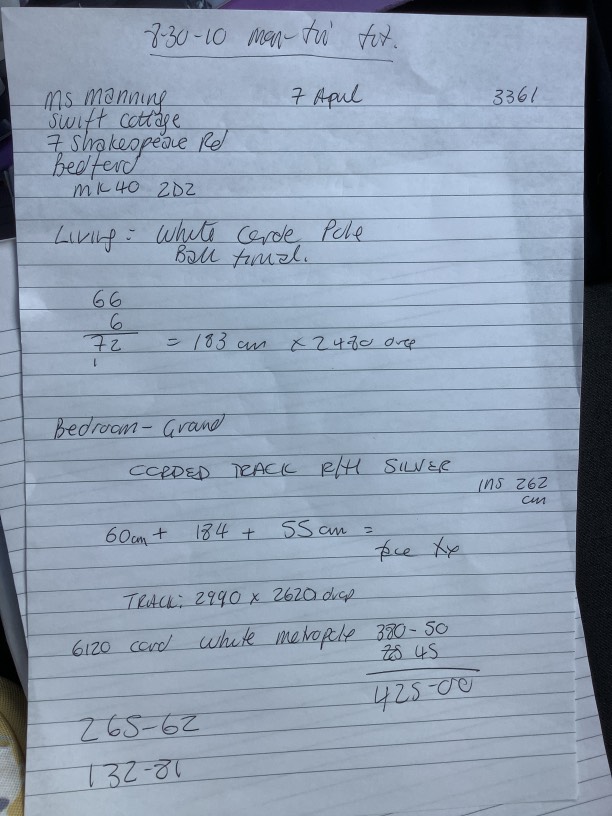 8-30-10 mon-fri fit.
Ms Manning 7 April 3361
Swift Cottage
7 Shakespeare Rd
Bedford
MK40 2DZ
Living = White Corde Pole
Ball finial.
66
6
72 = 183 cm x 2480 drop
1
Bedroom - Grand
CORDED TRACK R/H SILVER
ins 262
cm
60cm + 184 + 55cm =
TRACK: 2990 x 2620 drop
6120 cord white metropole 380-50
45
425-00
265-62
132-81